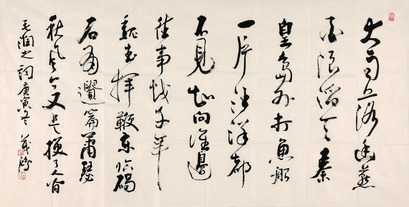 大雨落幽燕
白浪滔天秦
皇島外打魚船
一片汪洋都
不見知向誰邊
往事越千年
魏武揮鞭東临碣
石有遺篇蕭瑟
秋風今又是換了人间
毛润之詞庚寅冬